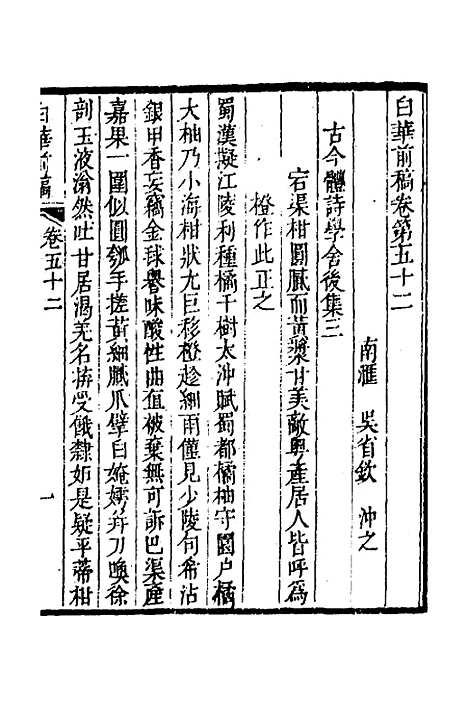 白華前稿卷第五十二
南滙 吳省欽 沖之
古今體詩學舍後集三
宕渠柑圓膩而黃漿甘美敵粵產居人皆呼爲
橙作此正之
蜀漢擬江陵利種橘千樹太沖賦蜀都橘柚守園戶橘
大柚乃小海柑狀尤巨移橙趁細雨僅見少陵句希沾
銀甲香妄竊金球譽味酸性曲直被棄無可訴巴渠產
嘉果一圍似圓瓠手搓黃細膩爪擘白媕嫮并刀喚徐
剖玉液滃然吐甘居渴羌名拚受傖隸妬是疑平蒂柑
白華前稿 卷五十二 一